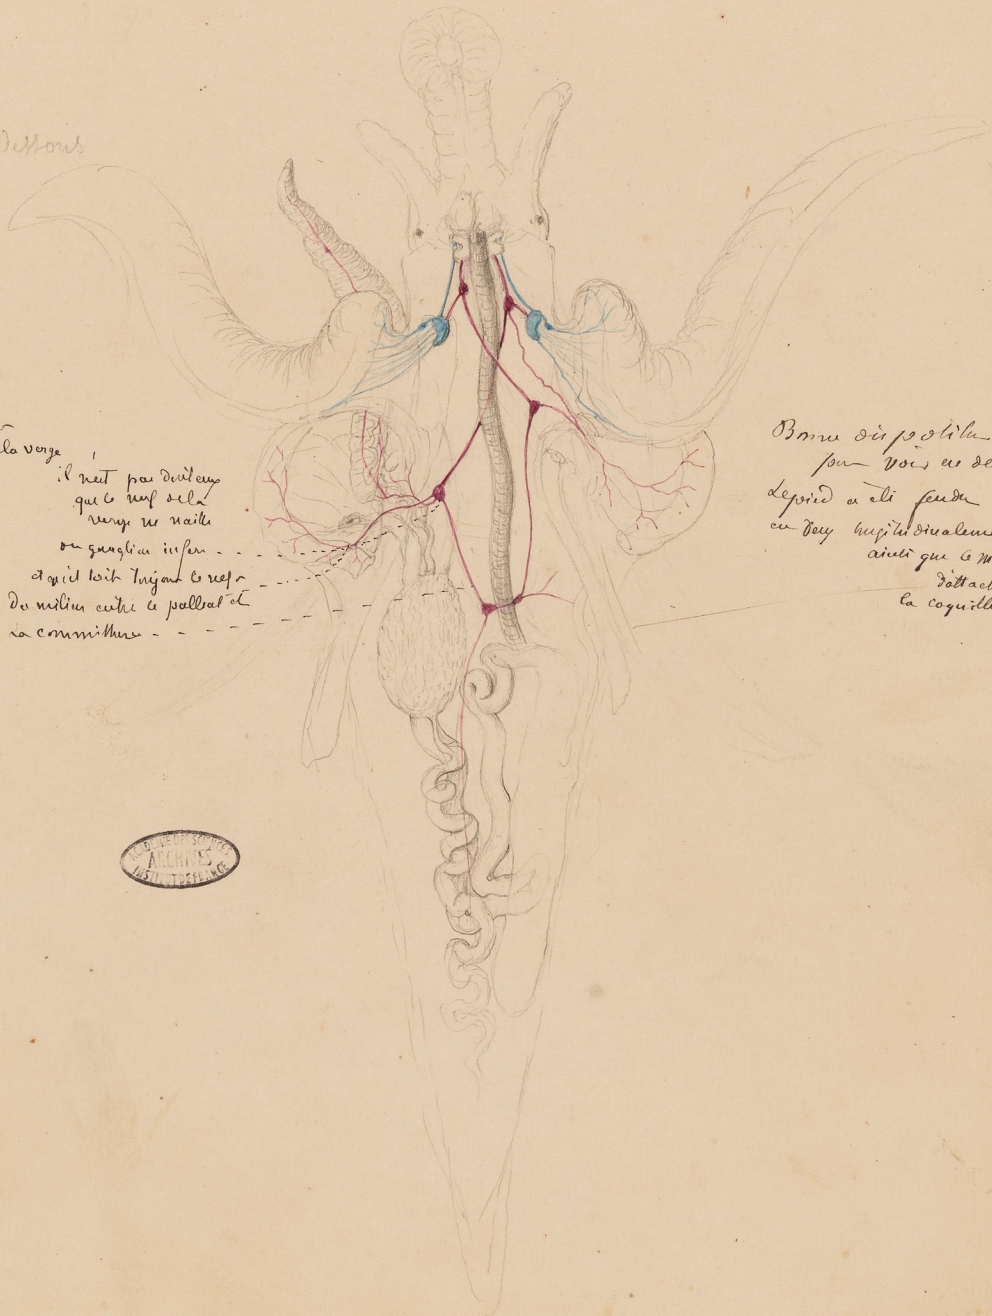 Dessous
à la verge
il n'est pas douteux
que le nerf de la
verge ne naisse
du ganglion infer
et qu'il soit toujours le nerf
du milieu entre le palleal et
La commissure
Bonne dispositi
pour voir en de
Le pied a été fendu
en deux longitudinaleme
ainsi que le m
d'attach
la coquille
ACADEMIE DES SCIENCES
ARCHIVES
INSTITUT DE FRANCE